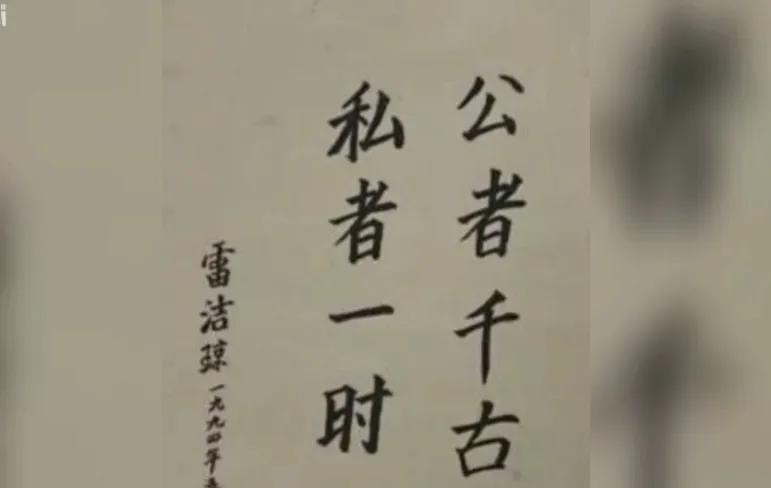 公者千古
私者一时
雷洁琼一九九四年